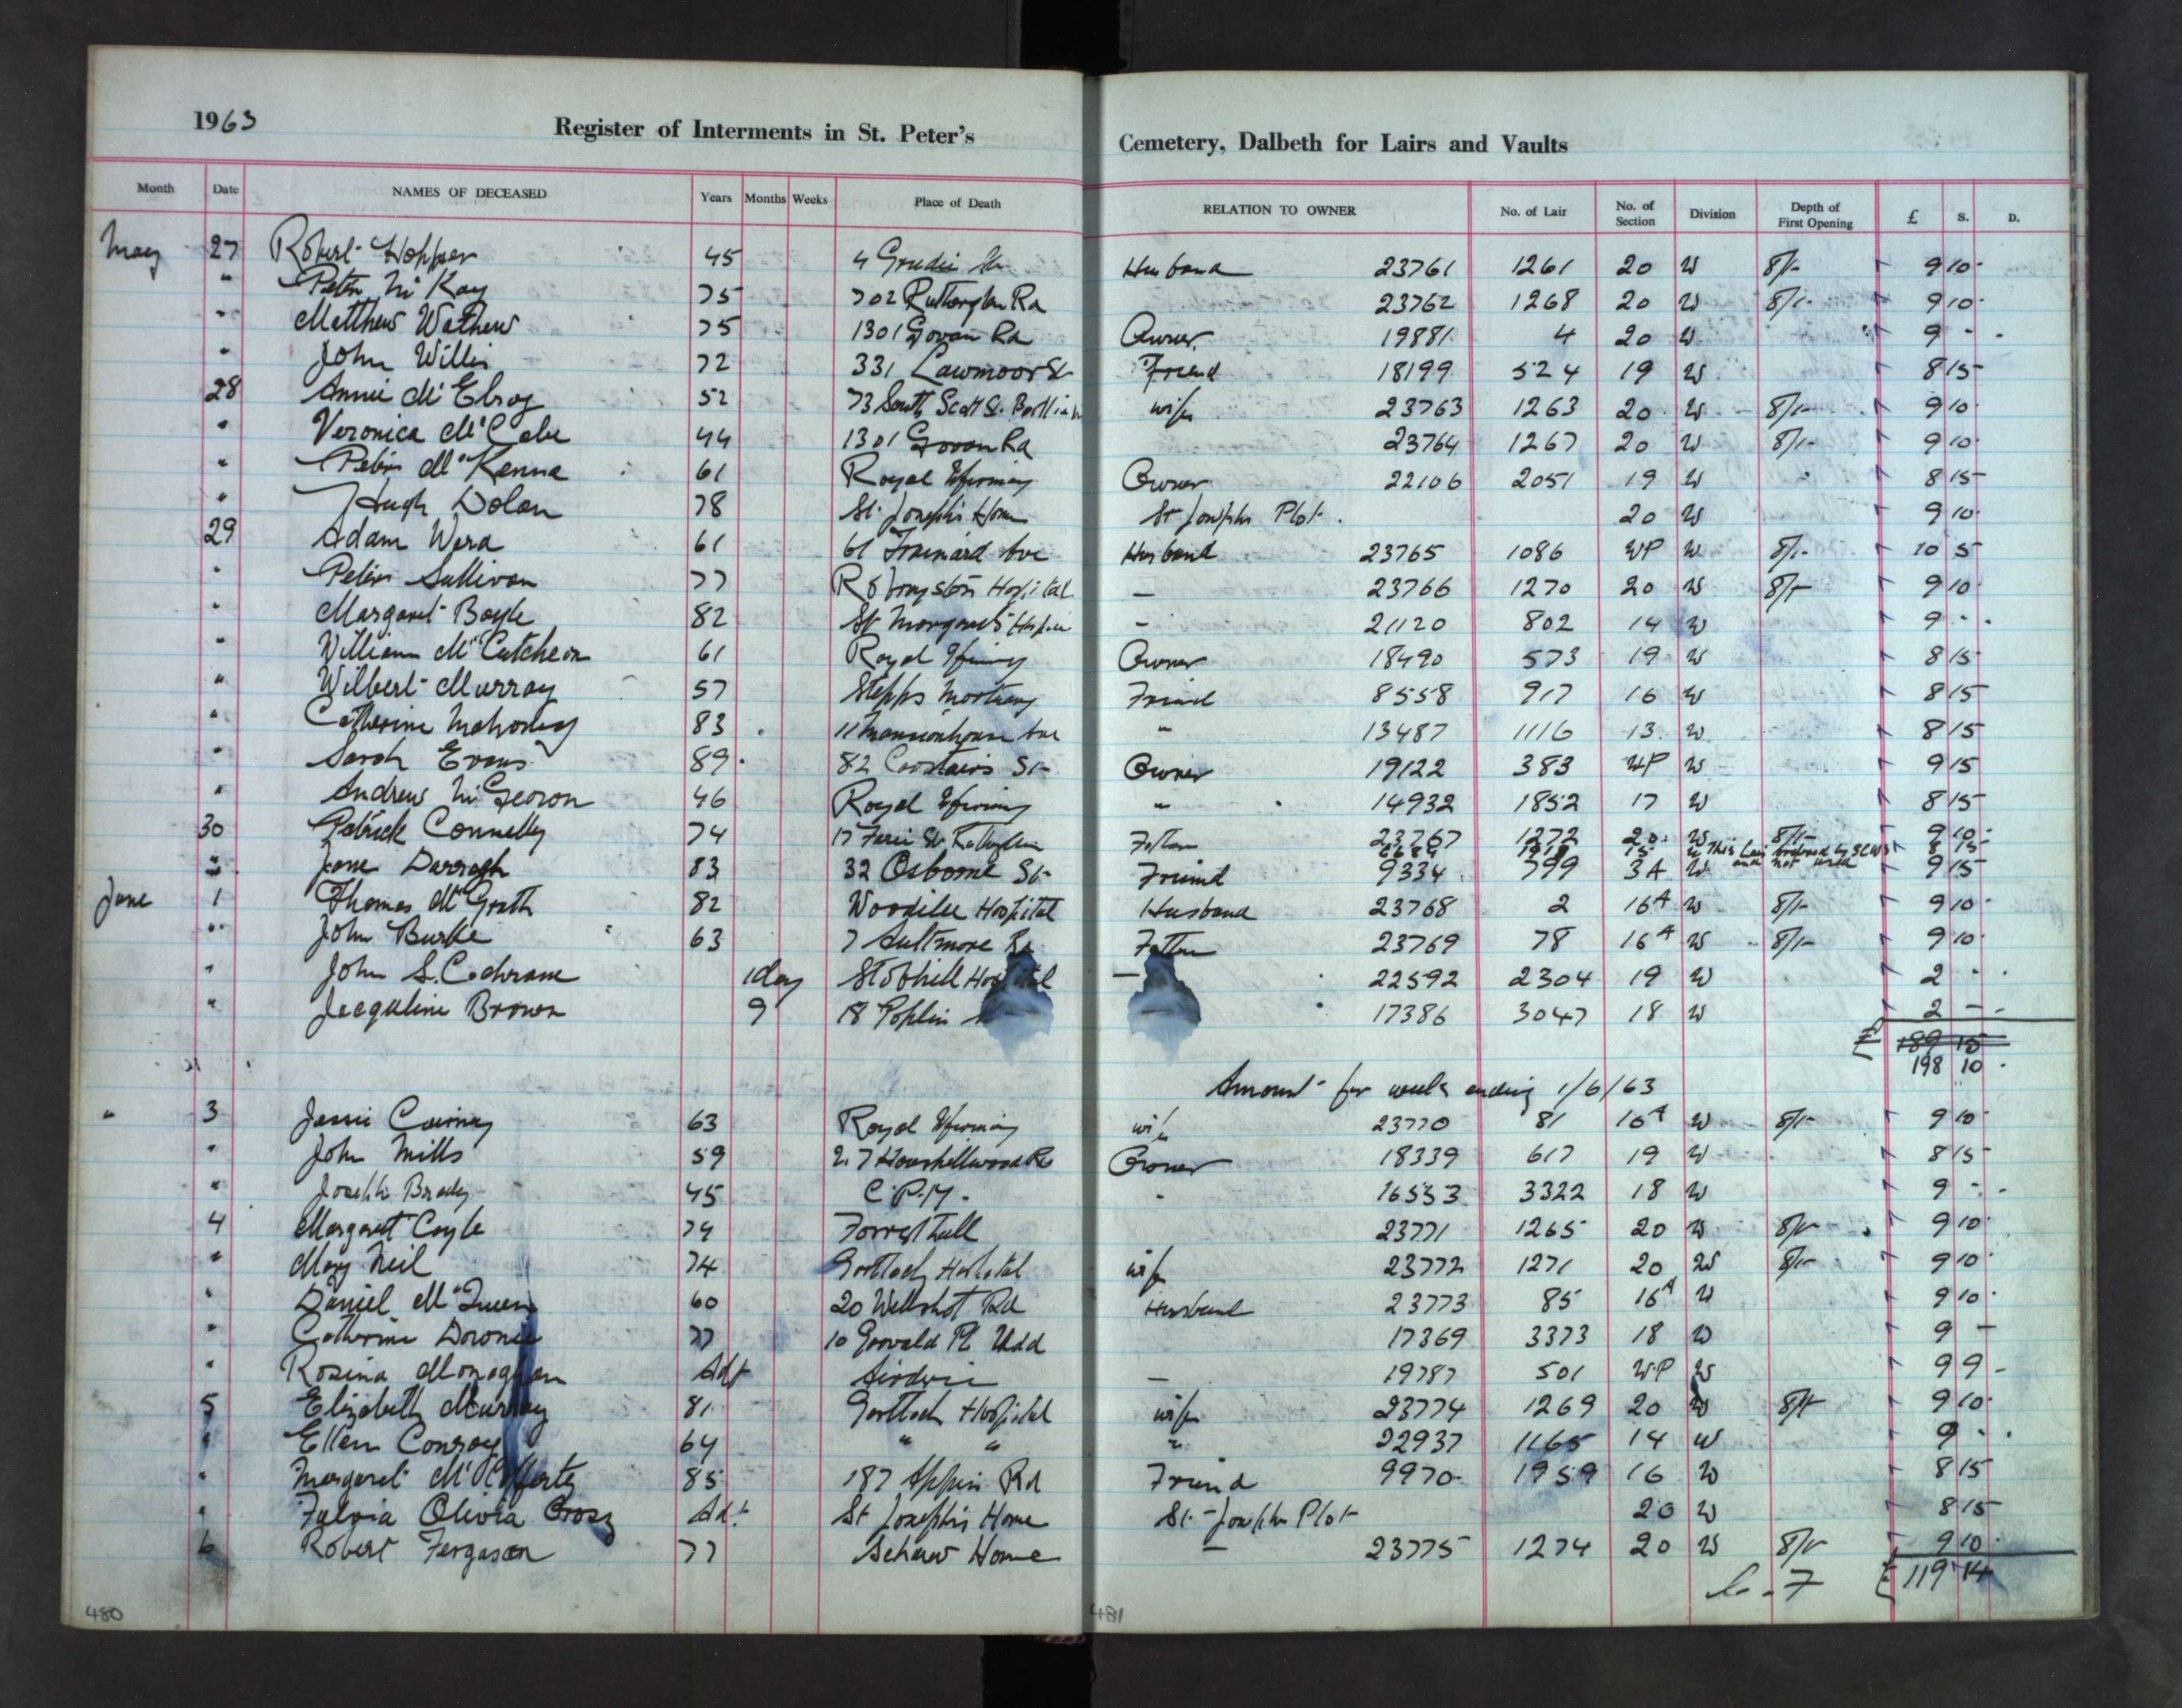 1963 Register of Interments in St. Peter's Cemetery, Dalbeth for Lairs and Vaults
Month Date NAMES OF DECEASED Years Months Weeks Place of Death RELATION TO OWNER No. of Lair No. of Section Division Depth of First Opening £ S. D.
May 27 Robert Hopper 45 4 Grudie St Husband 23761 1261 20 W 8/- 9 10
" Peter McKay 75 702 Rutherglen Rd 23762 1268 20 W 8/- 9 10
" Matthew 75 1301 Govan Rd Owner 19881 4 20 W 9 - -
" John Willis 72 331 Lawmoor St Friend 18199 524 19 W 8 15
28 Annie McElroy 52 73 South Scott St. wife 23763 1263 20 W 8/- 9 10
" Veronica McCabe 44 1301 Govan Rd 23764 1267 20 W 8/- 9 10
" Peter McKenna 61 Royal Infirmary Owner 22106 2051 19 W 8 15
" Hugh Dolan 78 St. Joseph's Home St Josephs Plot. 20 W 9 10
29 Adam Wera 61 61 Ave Husband 23765 1086 WP W 8/- 10 5
" Peter Sullivan 77 Robroyston Hospital - 23766 1270 20 W 8/- 9 10
" Margaret Boyle 82 St Margarets Hospice - 21120 802 14 W 9 - -
" William McCutcheon 61 Royal Infirmary Owner 18490 573 19 W 8 15
" Wilbert Murray 57 Stepps Mortuary Friend 8558 917 16 W 8 15
" Catherine Mahoney 83 11 Mansionhouse Ave " 13487 1116 13 W 8 15
" Sarah Evans 89 82 Carstairs St Owner 19122 383 WP W 9 15
" Andrew McGeoron 46 Royal Infirmary " 14932 1852 17 W 8 15
30 Patrick Connelly 74 17 St Father 23767 1272 20 W 8/- 9 10
15 W This Lair ordered by and not used 8 15
" Jane Darragh 83 32 Osborne St Friend 9334 799 3A W 9 15
June 1 Thomas McGrath 82 Woodilee Hospital Husband 23768 2 16A W 8/- 9 10
" John Burke 63 7 Aultmore Rd Father 23769 78 16A W 8/- 9 10
" John S. Cochrane 1 day Stobhill Hospital - 22592 2304 19 W 2 - -
" Jacqueline Brown 9 18 Poplin 17386 3047 18 W 2 - -
£ 189 15
198 10
Amount for week ending 1/6/63
" 3 Jessie Cairney 63 Royal Infirmary wife 23770 81 16A W 8/- 9 10
" John Mills 59 27 Househillwood Rd Owner 18339 617 19 W 8 15
" Joseph Brady 45 " 16553 3322 18 W 9 - -
4 Margaret Coyle 74 Forresthall 23771 1265 20 W 8/- 9 10
" Mary Neil 74 Gartloch Hospital wife 23772 1271 20 W 8/- 9 10
" Daniel McQueen 60 20 Wellshot Rd Husband 23773 85 16A W 9 10
" Catherine 77 10 Garvald Pl 17369 3373 18 W 9 -
" Rosina Monaghan Adt Airdrie - 19787 501 WP W 9 9 -
5 Elizabeth Murray 81 Gartloch Hospital wife 23774 1269 20 W 8/- 9 10
" Ellen Conroy 64 " " " 22937 1165 14 W 9 - -
" Margaret McCafferty 85 187 Appin Rd Friend 9970 1959 16 W 8 15
" Fulvia Olivia Adt. St Josephs Home St. Josephs Plot 20 W 8 15
6 Robert Ferguson 77 Schaw Home - 23775 1274 20 W 8/- 9 10
£ 119 14
480
481